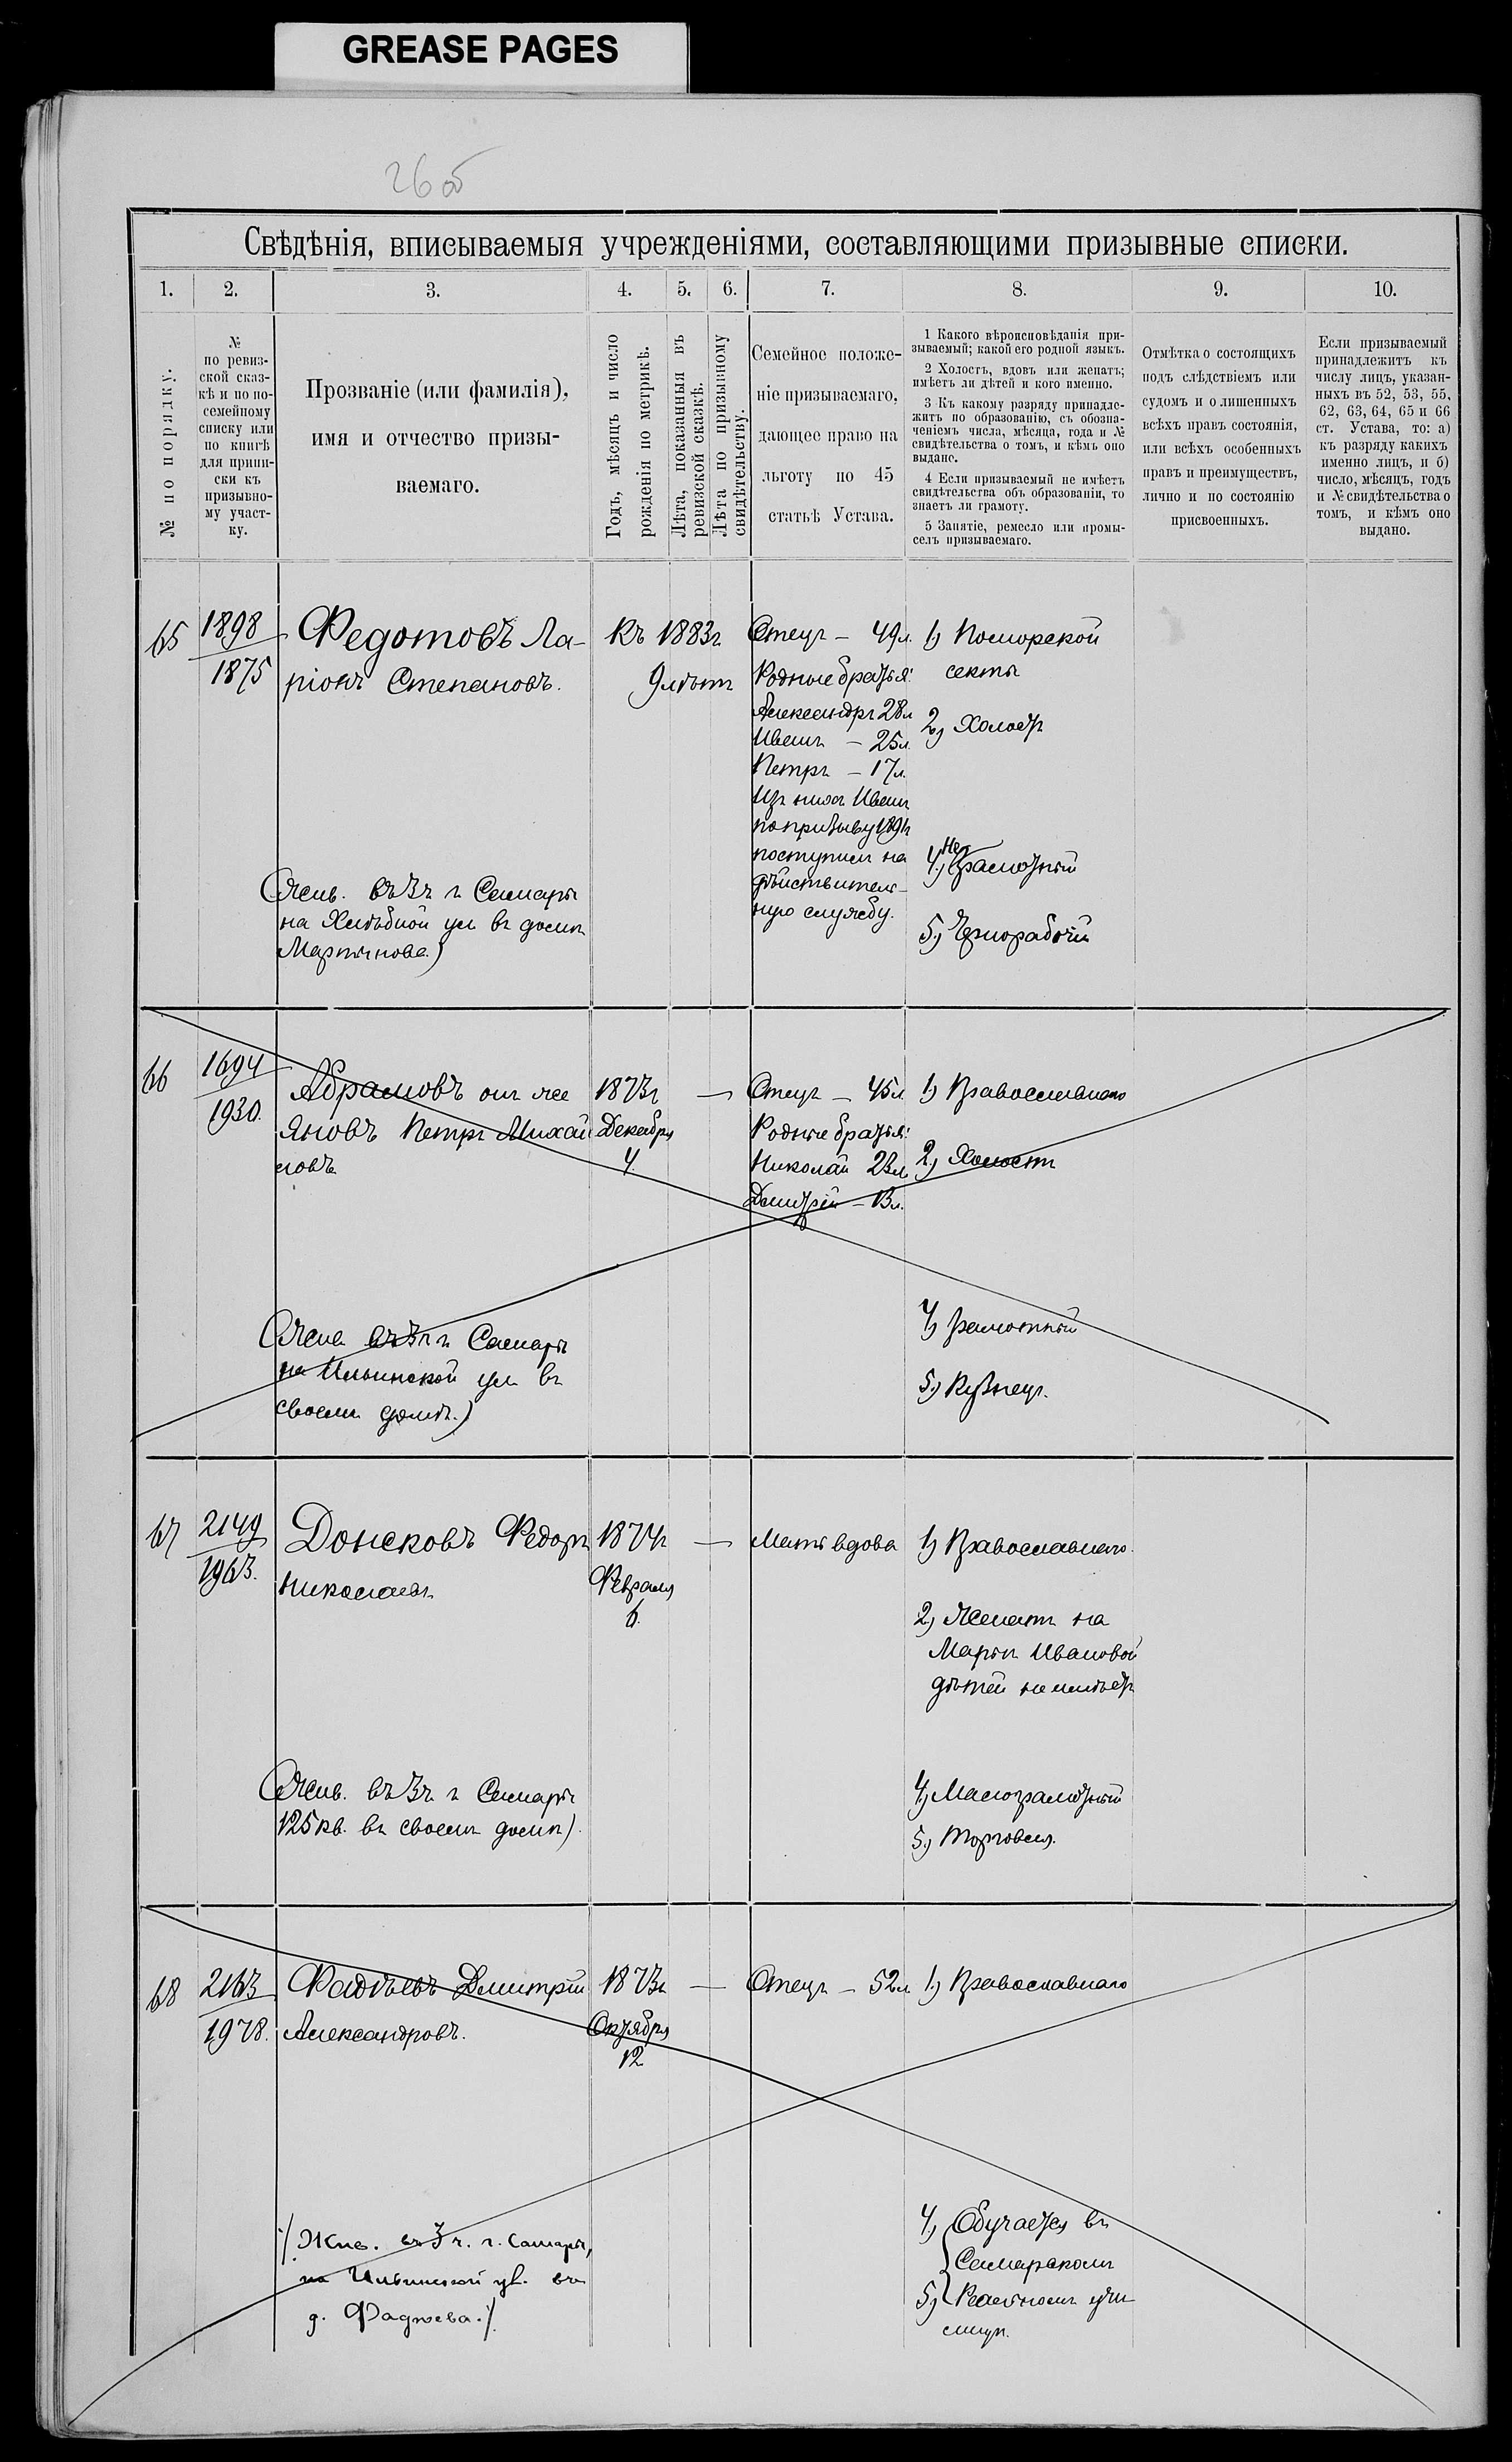 GREASE PAGES
26 об
Свѣдѣнія, вписываемыя учрежденіями, составляющими призывные списки.
1. 2. 3. 4. 5. 6. 7. 8. 9. 10.
№ по порядку.
№
по ревиз-
ской сказ-
кѣ и по по-
семейному
списку или
по книгѣ
для припи-
ски къ
призывно-
му участ-
ку.
Прозваніе (или фамилія),
имя и отчество призы-
ваемаго.
Годъ, мѣсяцъ и число
рожденія по метрикѣ.
Лѣта, показанныя въ
ревизской сказкѣ.
Лѣта по призывному
свидѣтельству.
Семейное положе-
ніе призываемаго,
дающее право на
льготу по 45
статьѣ Устава.
1 Какого вѣроисповѣданія при-
зываемый; какой его родной языкъ.
2 Холостъ, вдовъ или женатъ;
имѣетъ ли дѣтей и кого именно.
3 Къ какому разряду принадле-
житъ по образованію, съ обозна-
ченіемъ числа, мѣсяца, года и №
свидѣтельства о томъ, и кѣмъ оно
выдано.
4 Если призываемый не имѣетъ
свидѣтельства объ образованіи, то
знаетъ ли грамоту.
5 Занятіе, ремесло или промы-
селъ призываемаго.
Отмѣтка о состоящихъ
подъ слѣдствіемъ или
судомъ и о лишенныхъ
всѣхъ правъ состоянія,
или всѣхъ особенныхъ
правъ и преимуществъ,
лично и по состоянію
присвоенныхъ.
Если призываемый
принадлежитъ къ
числу лицъ, указан-
ныхъ въ 52, 53, 55,
62, 63, 64, 65 и 66
ст. Устава, то: а)
къ разряду какихъ
именно лицъ, и б)
число, мѣсяцъ, годъ
и № свидѣтельства о
томъ, и кѣмъ оно
выдано.
65
1898
1875
Федотовъ Ла-
ріонъ Степановъ.
(Жив. въ 3 ч г Самары
на Хлѣбной ул въ домѣ
Мартынова.)
Къ 1883 г
9 лѣтъ
Отецъ – 49 л.
Родные братья:
Александръ 28 л
Иванъ – 25 л.
Петръ – 17 л.
Изъ нихъ Иванъ
по призыву 1891 г
поступилъ на
дѣйствитель-
ную службу.
1) Поморской
секты
2) Холостъ
4) Неграмотный
5) Чернорабочій
66
1694
1930.
Абрамовъ онъ же
Яновъ Петръ Михай
ловъ
(Жив въ 3 ч г Самары
на Ильинской ул въ
своемъ домѣ.)
1873 г
Декабря
4.
—
Отецъ – 45 л
Родные братья:
Николай 23 л
Дмитрій – 13 л.
1) Православнаго
2) Холостъ
4) Грамотный
5) Кузнецъ.
67
2149
1963.
Донсковъ Федоръ
Николаевъ
(Жив. въ 3 ч г Самары
125 кв. въ своемъ домѣ).
1874 г
Февраля
6.
—
Мать вдова
1) Православнаго.
2) Женатъ на
Марьѣ Ивановой
дѣтей не имѣетъ
4) Малограмотный
5) Торговля.
68
2163
1978.
Фаддѣевъ Дмитрій
Александровъ.
/Жив. въ 3 ч. г. Самары,
на Ильинской ул. въ
д. Фадѣева./
1873 г
Октября
12
—
Отецъ – 52 л
1) Православнаго
4) Обучается въ
Самарскомъ
5) Реальномъ учи
лищѣ.